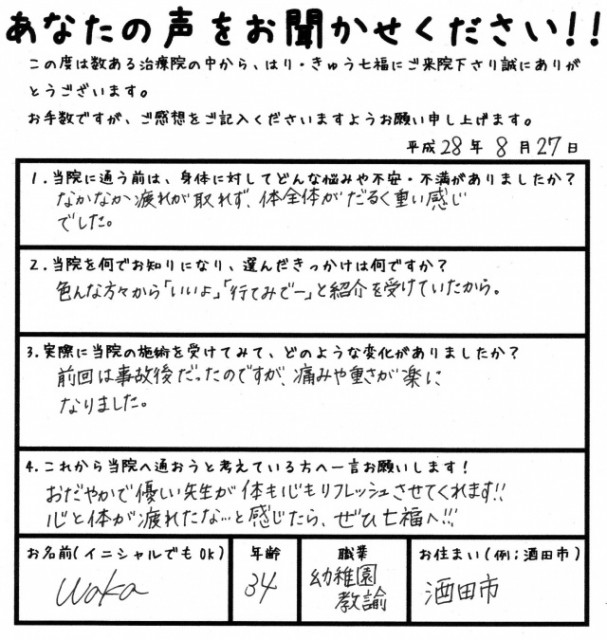 あなたの声をお聞かせください!!
この度は数ある治療院の中から、はり・きゅう七福にご来院下さり誠にありが
とうございます。
お手数ですが、ご感想をご記入くださいますようお願い申し上げます。
平成28年 8月27日
1.当院に通う前は、身体に対してどんな悩みや不安・不満がありましたか?
なかなか疲れが取れず、体全体がだるく重い感じ
でした。
2.当院を何でお知りになり、選んだきっかけは何ですか?
色んな方々から「いいよ」「行てみでー」と紹介を受けていたから。
3.実際に当院の施術を受けてみて、どのような変化がありましたか?
前回は事故後だったのですが、痛みや重さが楽に
なりました。
4.これから当院へ通おうと考えている方へ一言お願いします!
おだやかで優しい先生が体も心もリフレッシュさせてくれます!!
心と体が疲れたな…と感じたら、ぜひ七福へ!!!
お名前(イニシャルでもOK) 年齢 職業 お住まい(例;酒田市)
waka 34 幼稚園教諭 酒田市